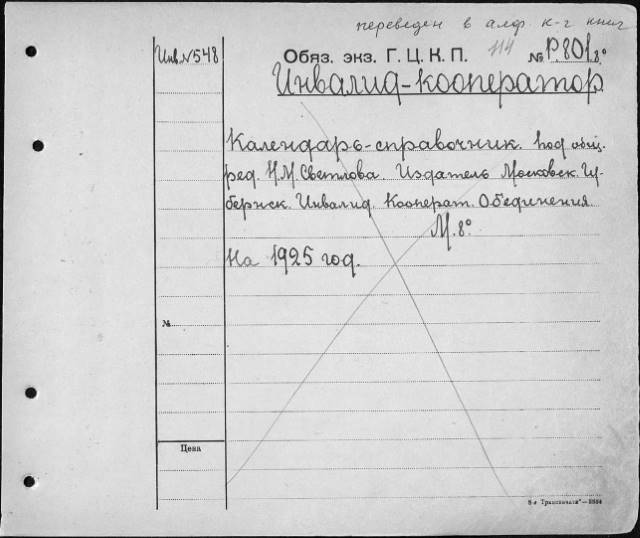 переведен в алф. к-г книг
Инв.№548
Обяз. экз. Г. Ц. К. П.
114
№ Р.801 8°
Инвалид-кооператор
Календарь-справочник. Под общ.
ред. Н.М. Светлова. Издатель Московск. Гу-
бернск. Инвалид. Кооперат. Объединения
М. 8°
На 1925 год.
№
Цена